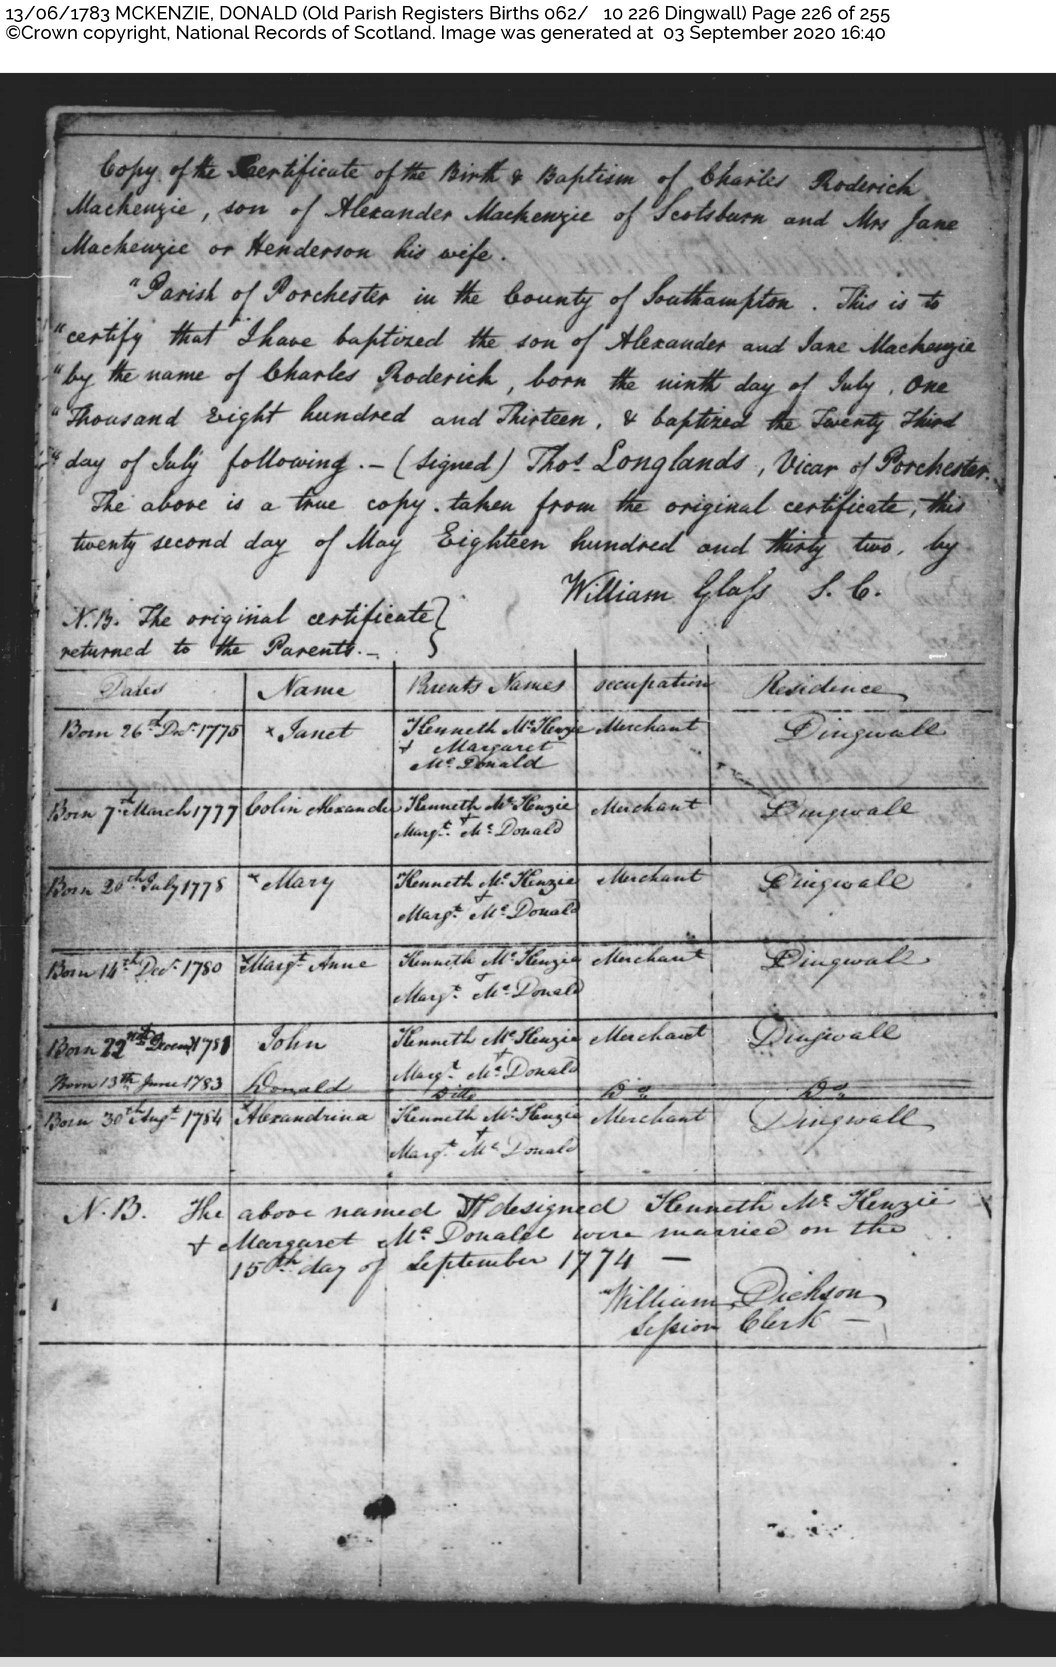 13/06/1783 MCKENZIE, DONALD (Old Parish Registers Births 062/ 10 226 Dingwall) Page 226 of 255
©Crown copyright, National Records of Scotland. Image was generated at 03 September 2020 16:40
Copy of the Certificate of the Birth & Baptism of Charles Roderick
Mackenzie, son of Alexander Mackenzie of Scotsburn and Mrs Jane
Mackenzie or Henderson his wife.
"Parish of Porchester in the County of Southampton. This is to
"certify that I have baptized the son of Alexander and Jane Mackenzie
"by the name of Charles Roderick, born the ninth day of July, One
"Thousand Eight hundred and Thirteen, & baptized the Twenty Third
"day of July following. – (Signed) Thos. Longlands, Vicar of Porchester.
The above is a true copy taken from the original certificate, this
twenty second day of May Eighteen hundred and thirty two, by
William Glass S. C.
N.B. The original certificate
returned to the Parents. –
Dates Name Parents Names occupation Residence
Born 26th Decr. 1775 × Janet Kenneth McKenzie Merchant Dingwall
& Margaret
McDonald
Born 7th March 1777 Colin Alexander Kenneth McKenzie Merchant Dingwall
&
Margt. McDonald
Born 20th July 1778 × Mary Kenneth McKenzie Merchant Dingwall
&
Margt. McDonald
Born 14th Decr. 1780 × Margt. Anne Kenneth McKenzie Merchant Dingwall
&
Margt. McDonald
Born 22nd 1781 John Kenneth McKenzie Merchant Dingwall
&
Margt. McDonald
Born 13th June 1783 Donald Ditto Do. Do.
Born 30th Augt. 1784 × Alexandrina Kenneth McKenzie Merchant Dingwall
&
Margt. McDonald
N.B. The above named & designed Kenneth McKenzie
& Margaret McDonald were married on the
15th day of September 1774 —
William Dickson
Session Clerk —